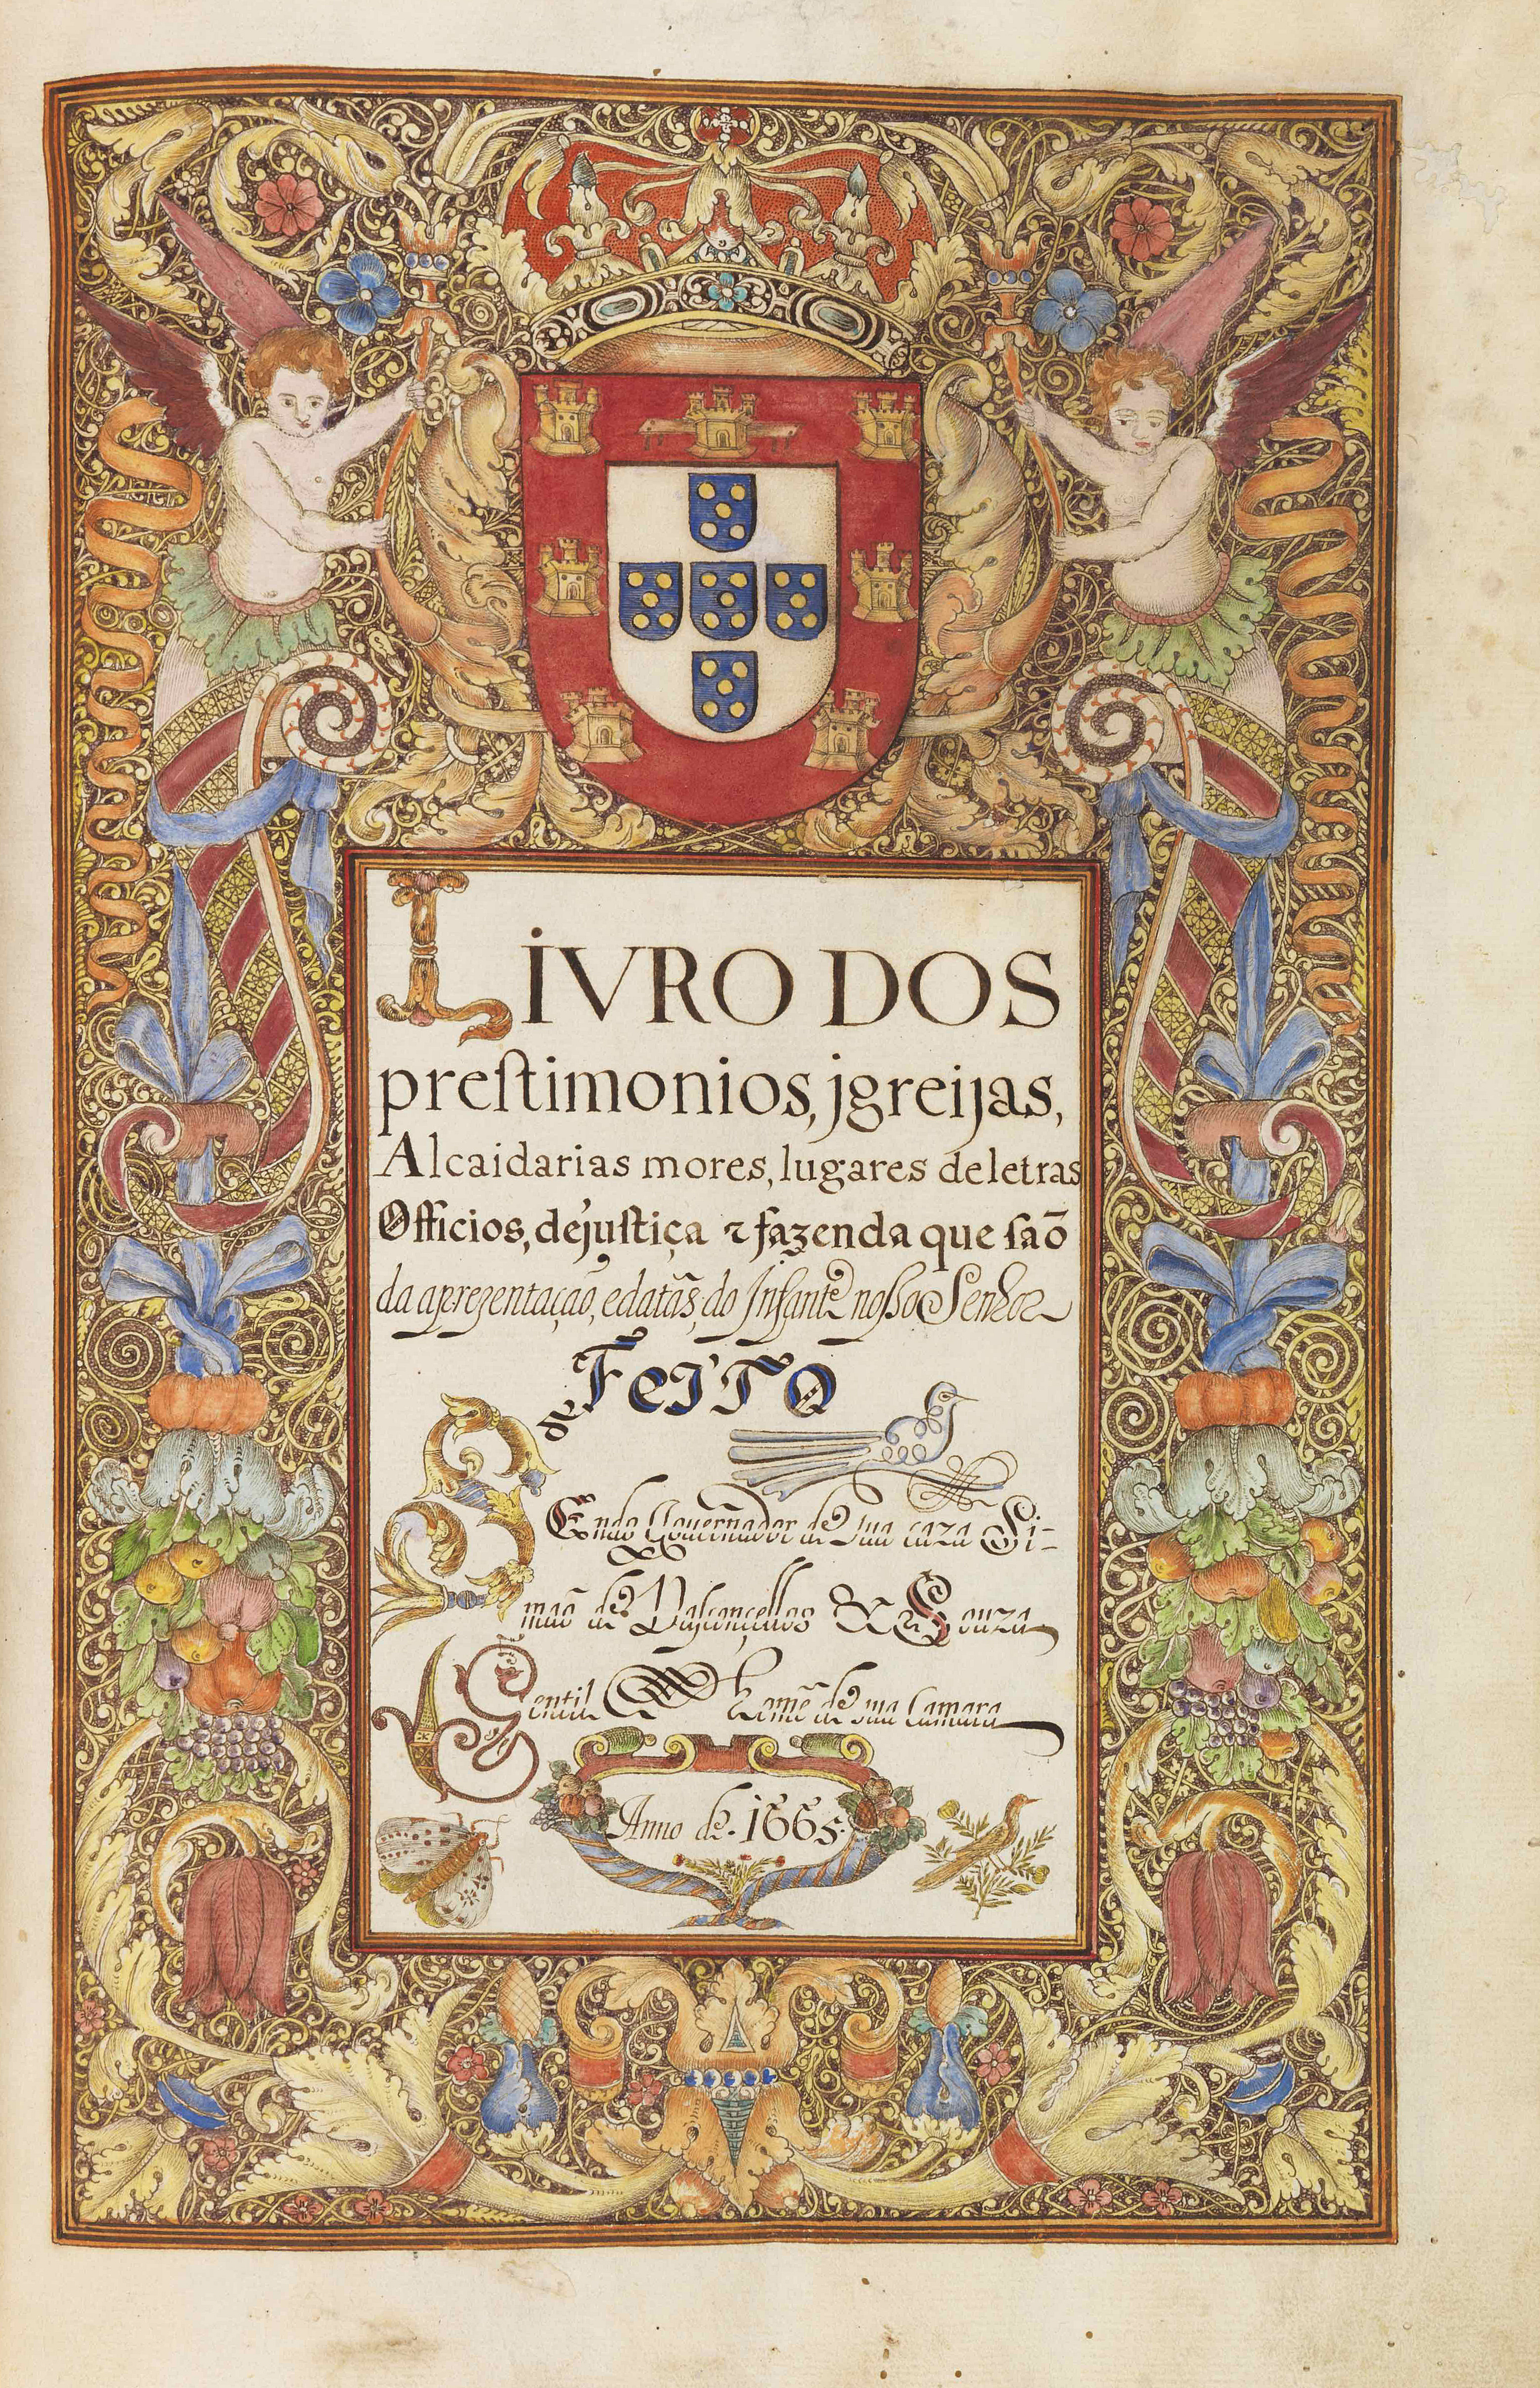 LiVRO DOS
preſtimonios, jgreijas,
Alcaidarias mores, lugares de letras
Officios, de juſtiça ⁊ fazenda que ſaõ
da aprezentaçaõ, e datãs, do Infante noſso Senhor
FeiTO
SEndo Gouernador de Sua caza Si-
maõ de Vasconçellos & Souza
Gentil homẽ de sua Camara
Anno de. 1665.